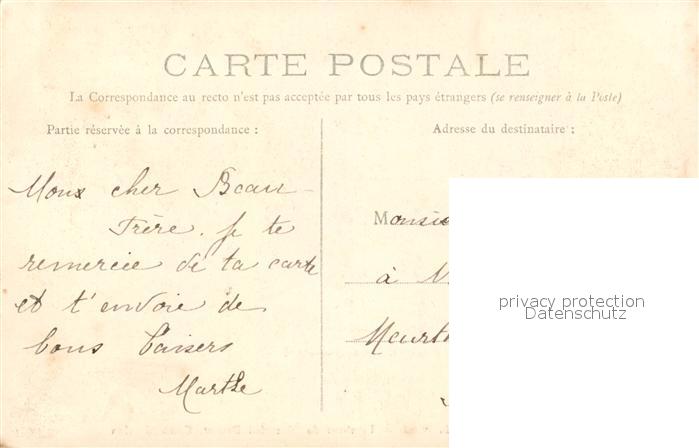 CARTE POSTALE
La Correspondance au recto n'est pas acceptée par tous les pays étrangers (se renseigner à la Poste)
Partie réservée à la correspondance :
Mon cher Beau-
Frère. Je te
remercie de ta carte
et t'envoie de
bons baisers
Marthe
Adresse du destinataire :
Monsie
à
Meurth
privacy protection
Datenschutz